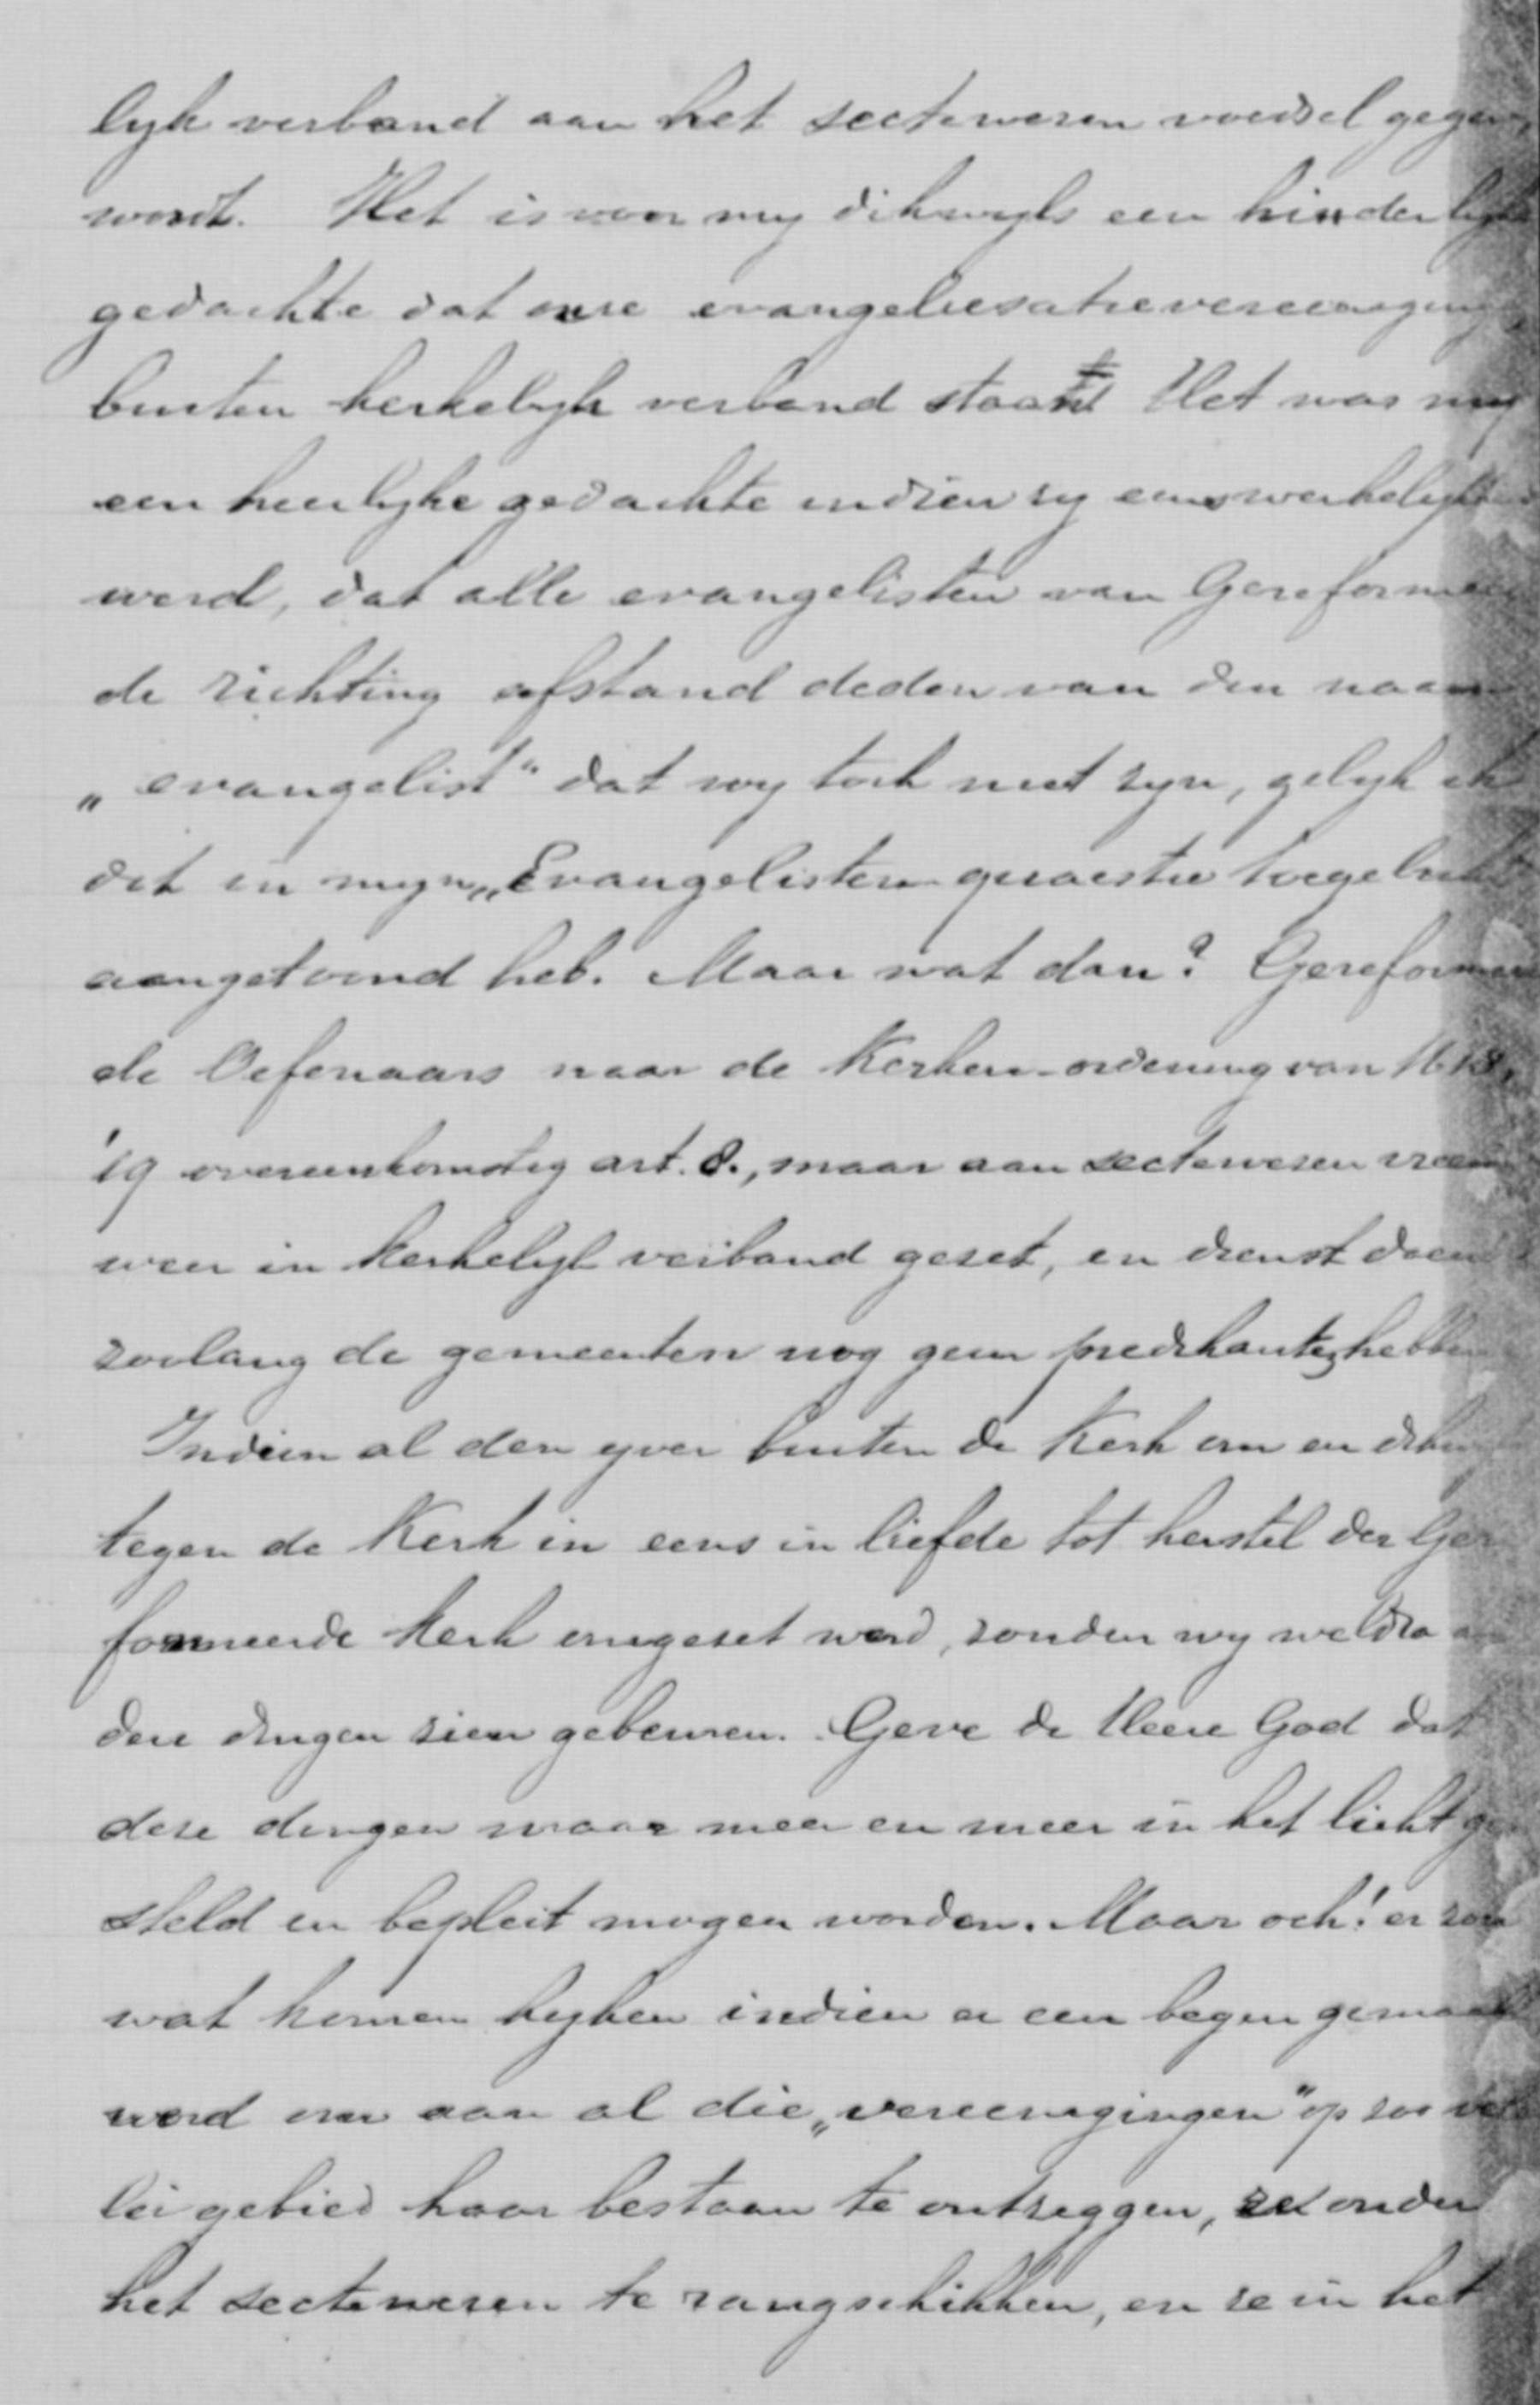 lyk verband aan het sectewezen voedsel gegeven
wordt. Het is voor my dikwyls een hinderlyke
gedachte dat onze evangeliesatievereeniging
buiten kerkelyk verband staat Het was my
een heerlyke gedachte indien zy eens werkelykheid
werd, dat alle evangelisten van Gereformeer
de richting afstand deden van den naam
„evangelist" dat wy toch niet zyn, gelyk ik
dit in myn „Evangelisten quaestie toegelicht
aangetoond heb. Maar wat dan? Gereformeer
de Oefenaars naar de Kerken-ordening van 1618,
'19 overeenkomstig art. 8., maar aan sectewezen vreemd
weer in kerkelyk verband gezet, en dienst doen
zoolang de gemeenten nog geen predikanten hebben
Indien al den yver buiten de Kerk om en dikwyls
tegen de Kerk in eens in liefde tot herstel der Ger
formeerde Kerk omgezet werd, zouden wy weldra an
dere dingen zien gebeuren. Geve de Heere God dat
deze dingen maar meer en meer in het licht ge
steld en bepleit mogen worden. Maar och! er zou
wat komen kyken indien er een begin gemaakt
werd om aan al die „vereenigingen" op zoo veler
lei gebied haar bestaan te ontzeggen, ze onder
het sectewezen te rangschikken, en ze in het